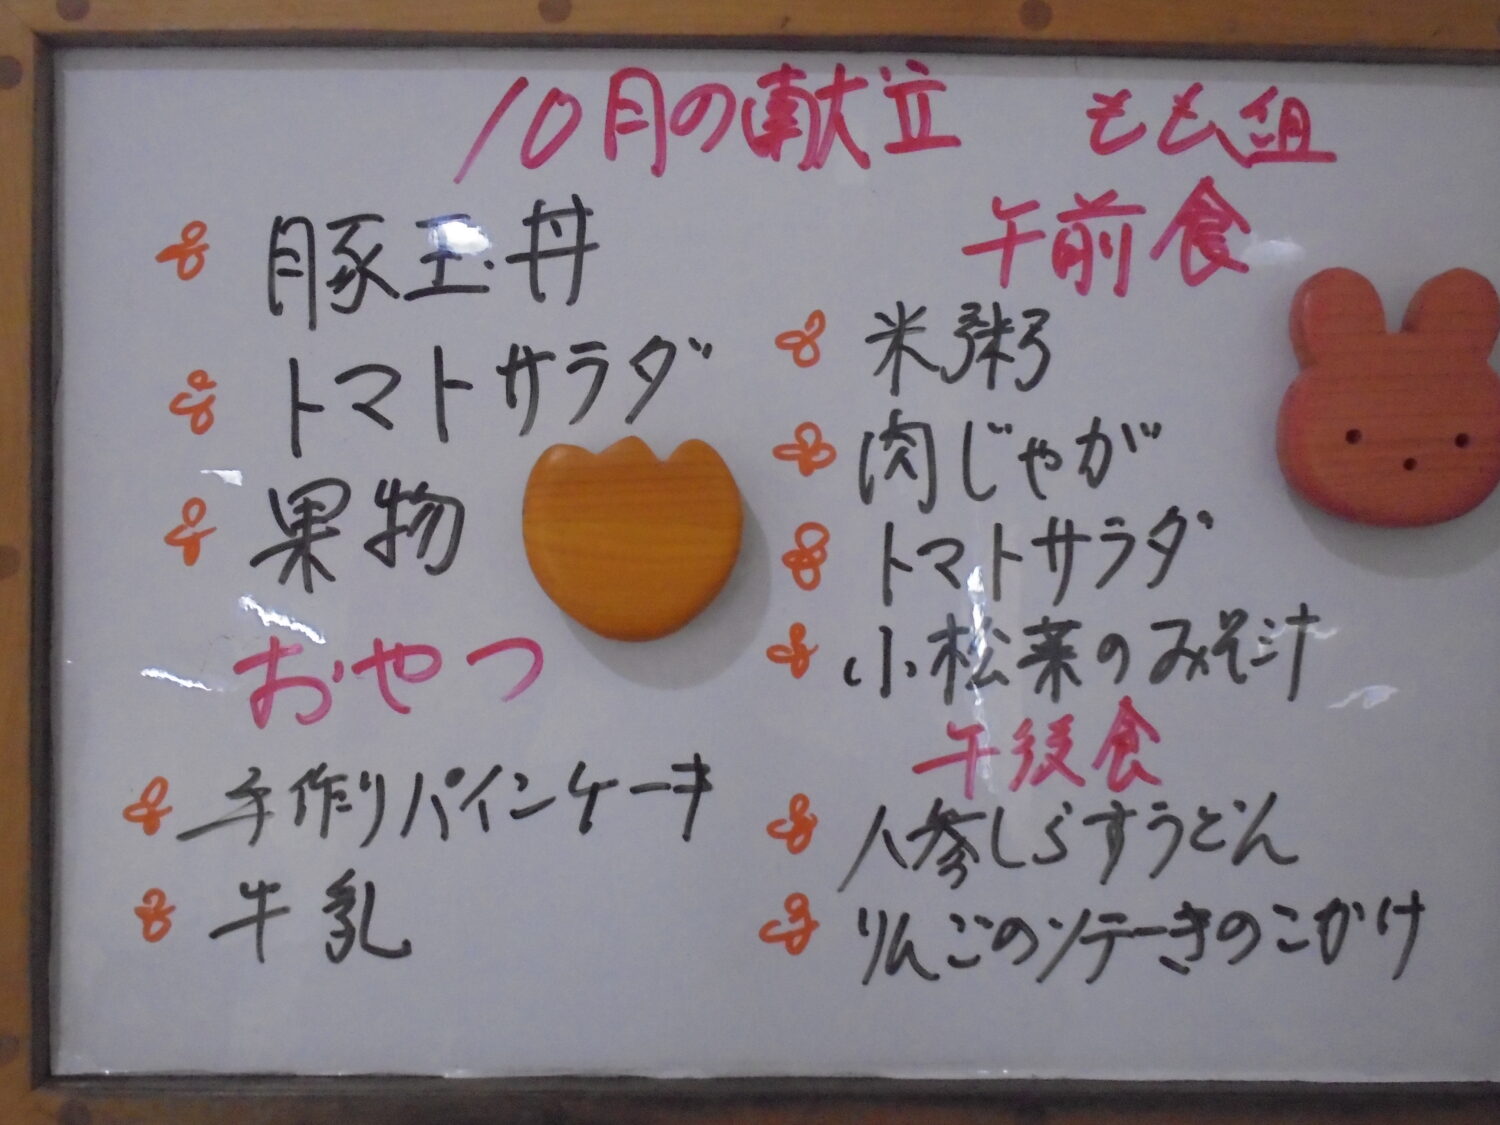 10月の献立 もも組
豚玉丼
トマトサラダ
果物
おやつ
手作りパインケーキ
牛乳
午前食
米粥
肉じゃが
トマトサラダ
小松菜のみそ汁
午後食
人参しらすうどん
りんごのソテーきのこがけ